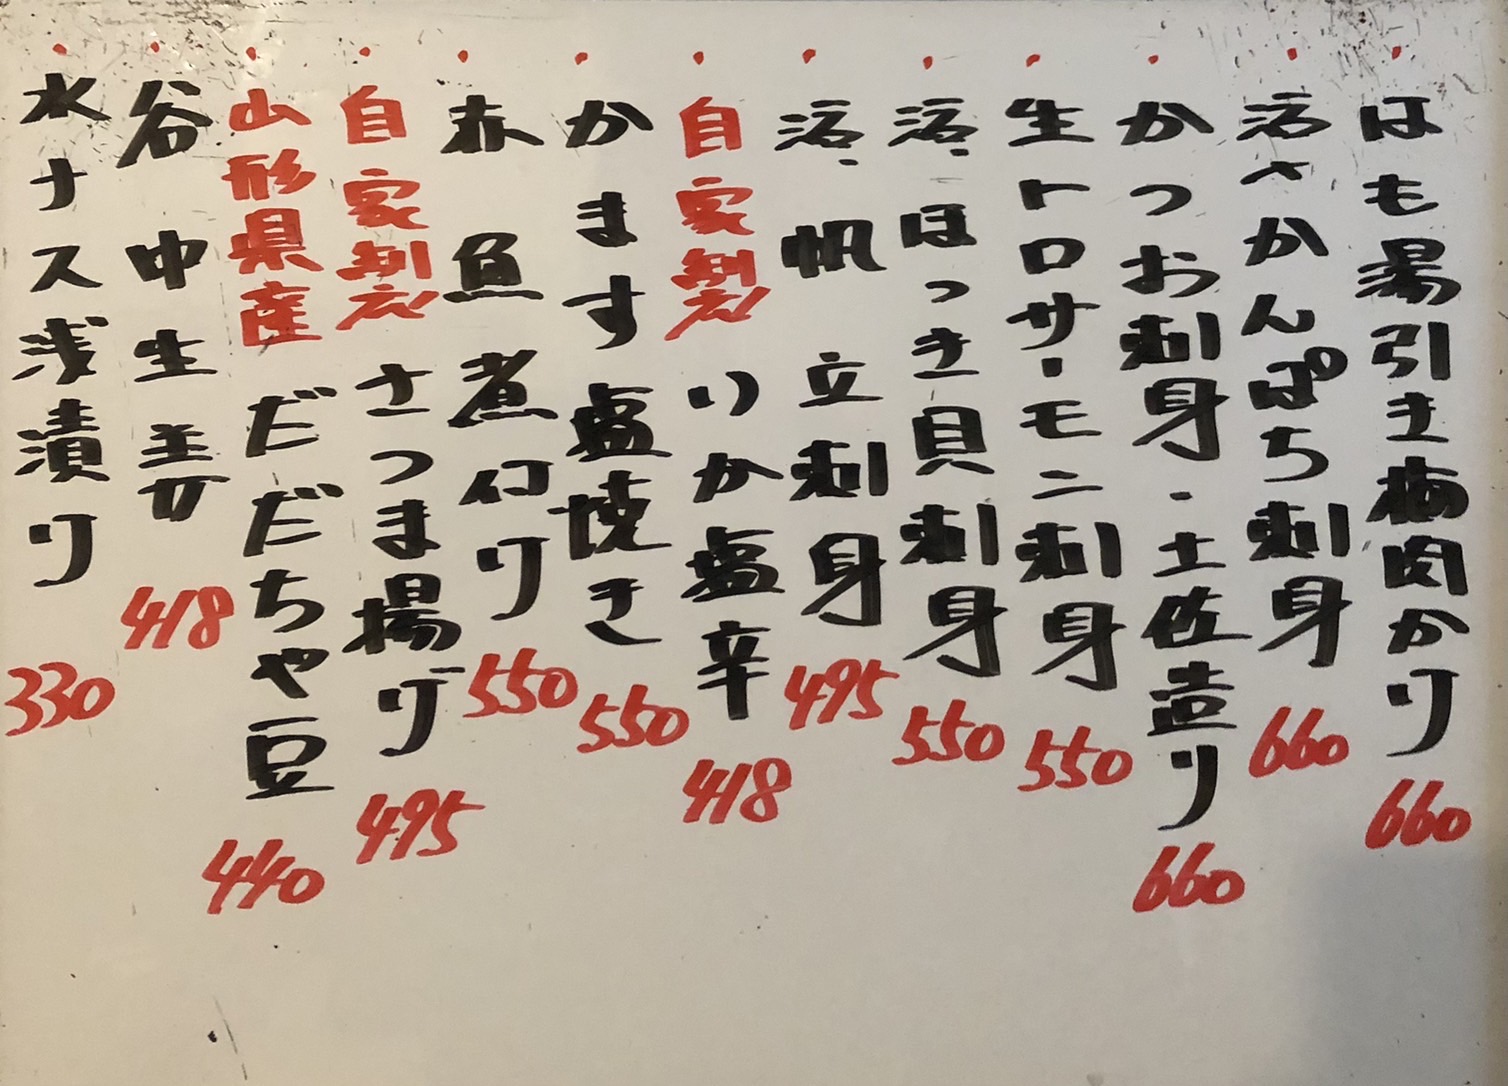 はも湯引き梅肉かり 660
活〆かんぱち刺身 660
かつお刺身・土佐造り 660
生トロサーモン刺身 550
活〆ほっき貝刺身 550
活〆帆立刺身 495
自家製いか塩辛 418
かます塩焼き 550
赤魚煮付り 550
自家製さつま揚げ 495
山形県産だだちゃ豆 440
谷中生姜 418
水ナス浅漬り 330